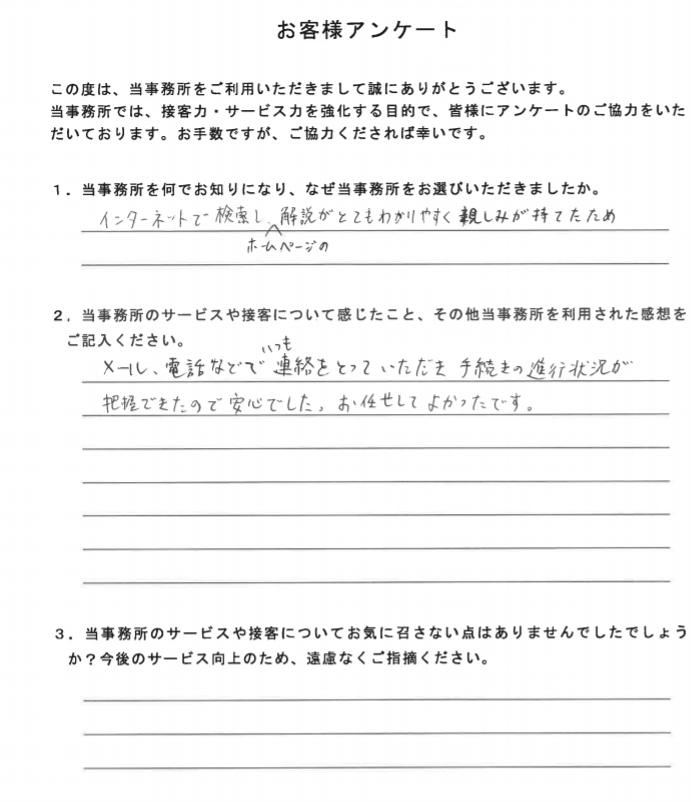 お客様アンケート
この度は、当事務所をご利用いただきまして誠にありがとうございます。
当事務所では、接客力・サービス力を強化する目的で、皆様にアンケートのご協力をいた
だいております。お手数ですが、ご協力くだされば幸いです。
１．当事務所を何でお知りになり、なぜ当事務所をお選びいただきましたか。
インターネットで検索し、解説がとてもわかりやすく親しみが持てたため
ホームページの
２．当事務所のサービスや接客について感じたこと、その他当事務所を利用された感想を
ご記入ください。
いつも
メール、電話などで連絡をとっていただき手続きの進行状況が
把握できたので安心でした。お任せしてよかったです。
３．当事務所のサービスや接客についてお気に召さない点はありませんでしたでしょう
か？今後のサービス向上のため、遠慮なくご指摘ください。